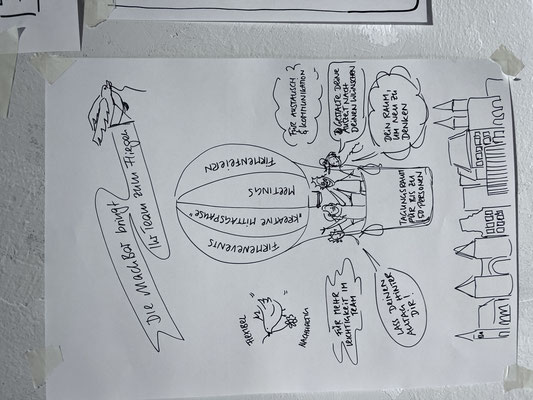 "Die MachBar bringt
Ihr Team zum Fliegen"
FÜR AUSTAUSCH
& KOMMUNIKATION
GESTALTE DEINE
AUSZEIT NACH
DEINEN WÜNSCHEN
DEIN RAUM,
UM NEU ZU
DENKEN
FIRMENEVENTS
"KREATIVE MITTAGSPAUSE"
MEETINGS
FIRMENFEIERN
TAGUNGSRAUM
FÜR BIS ZU
50 PERSONEN
FLEXIBEL
NACHHALTIG
FÜR MEHR
LEICHTIGKEIT IM
TEAM
LASS DEINEN
ALLTAG HINTER
DIR!